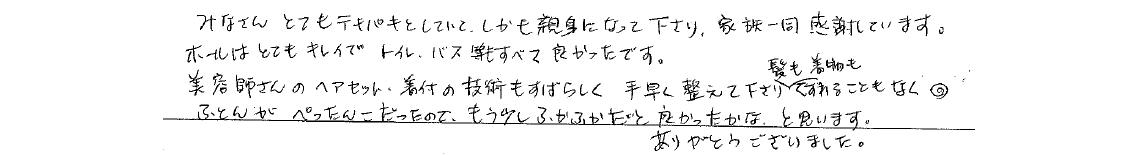 みなさん とてもテキパキとしていて、しかも親身になって下さり、家族一同 感謝しています。
ホールはとてもキレイで トイレ、バス等すべて良かったです。
美容師さんのヘアセット、着付の技術もすばらしく 手早く整えて下さり、髪も着物もくずれることもなく◎
ふとんが ぺったんこだったので、もう少しふかふかだと良かったかな、と思います。
ありがとうございました。